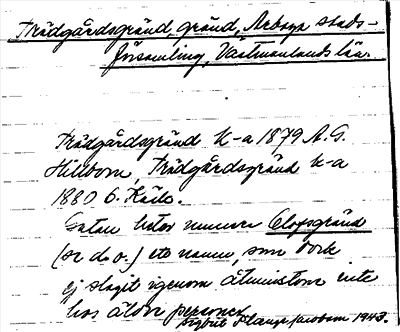 Trädgårdsgränd, gränd, Arboga stads-
församling, Västmanlands län.
Trädgårdsgränd k-a 1879 A. G.
Hillbom, Trädgårdsgränd k-a
1880 G. Käll.
Gatan heter numera Olofsgränd
(se d. o.) ett namn, som dock
ej slagit igenom åtminstone inte
hos äldre personer
Sigbrit Plænge Jacobson 1943.